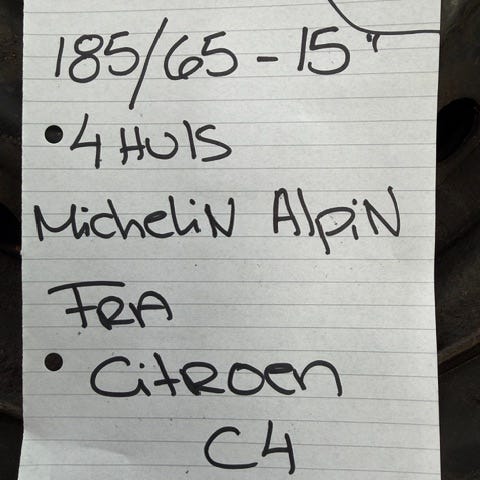 185/65-15"
4 HUlS
MicheliN AlpiN
FRA
CitROEn
C4